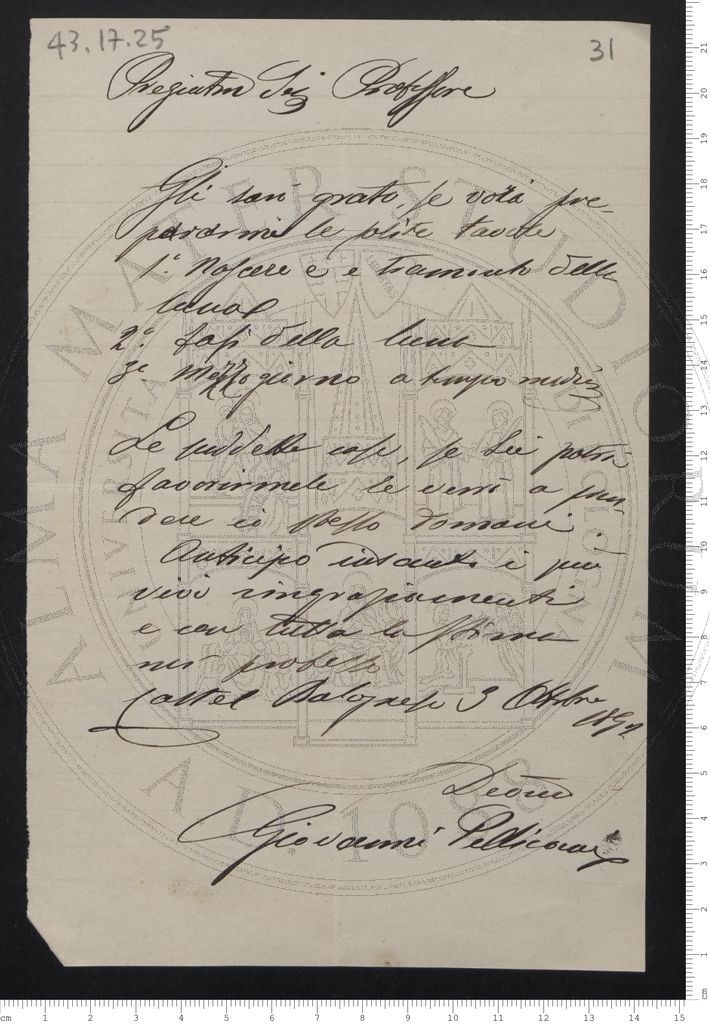 43.17.25
31
Pregiatm Sig Professore
Gli sarò grato, se vorà pre-
pararmi le solite tavole
1.° Nascere e tramonto della
luna
2.° fasi della luna
3° Mezzogiorno a tempo medio
Le suddette cose, se Lei potrà
favorirmele le verrò a pren-
dere io stesso domani.
Anticipo intanto i più
vivi ringraziamenti
e con tutta la stima
mi professo
Castel Bolognese 3 Ottobre
1892
Devmo
Giovanni
ALMA MATER STUDIORUM
UNIVERSITA
A.D. 1088